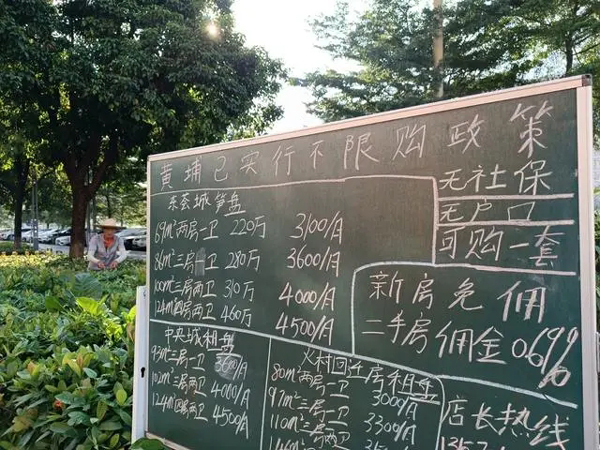 黄埔已实行不限购政策
无社保
无户口
可购一套
东荟城笋盘
69m²两房一卫 220万 3100/月
86m²三房一卫 280万 3600/月
100m²三房两卫 310万 4000/月
124m²四房两卫 460万 4500/月
新房免佣
二手房佣金0.69%
中央城租盘
93m²三房一卫 3600/月
102m²三房两卫 4000/月
124m²四房两卫 4500/月
火村回迁房租盘
80m²两房一卫 3000/月
97m²三房一卫
110m²三房两卫 3300/月
146m²
店长热线